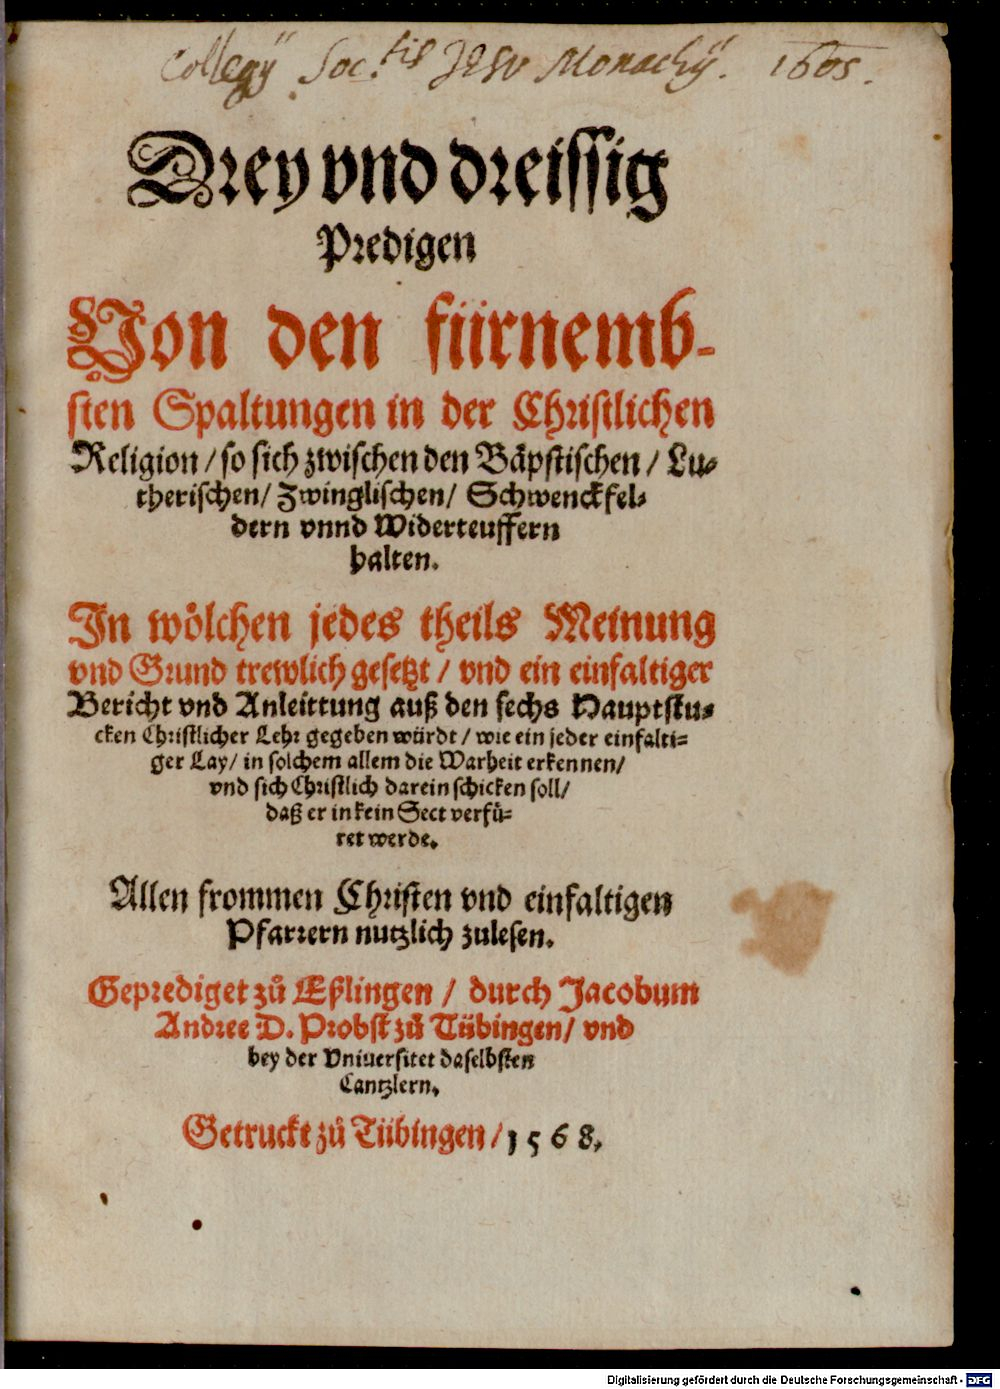 Collegij Soc.tis Jesu Monachij. 1605.
Drey vnd dreissig
Predigen
Von den fürnemb-
sten Spaltungen in der Christlichen
Religion / so sich zwischen den Bäpstischen / Lu-
therischen / Zwinglischen / Schwenckfel-
dern vnnd Widerteuffern
halten.
In wölchen jedes theils Meinung
vnd Grund trewlich gesetzt / vnd ein einfaltiger
Bericht vnd Anleittung auß den sechs Hauptstu-
cken Christlicher Lehr gegeben würdt / wie ein jeder einfalti-
ger Lay / in solchem allem die Warheit erkennen /
vnd sich Christlich darein schicken soll /
daß er in kein Sect verfü-
ret werde.
Allen frommen Christen vnd einfaltigen
Pfarrern nutzlich zulesen.
Geprediget zů Eßlingen / durch Jacobum
Andree D. Probst zů Tübingen / vnd
bey der Vniuersitet daselbsten
Cantzlern.
Getruckt zů Tübingen / 1568.
Digitalisierung gefördert durch die Deutsche Forschungsgemeinschaft - DFG